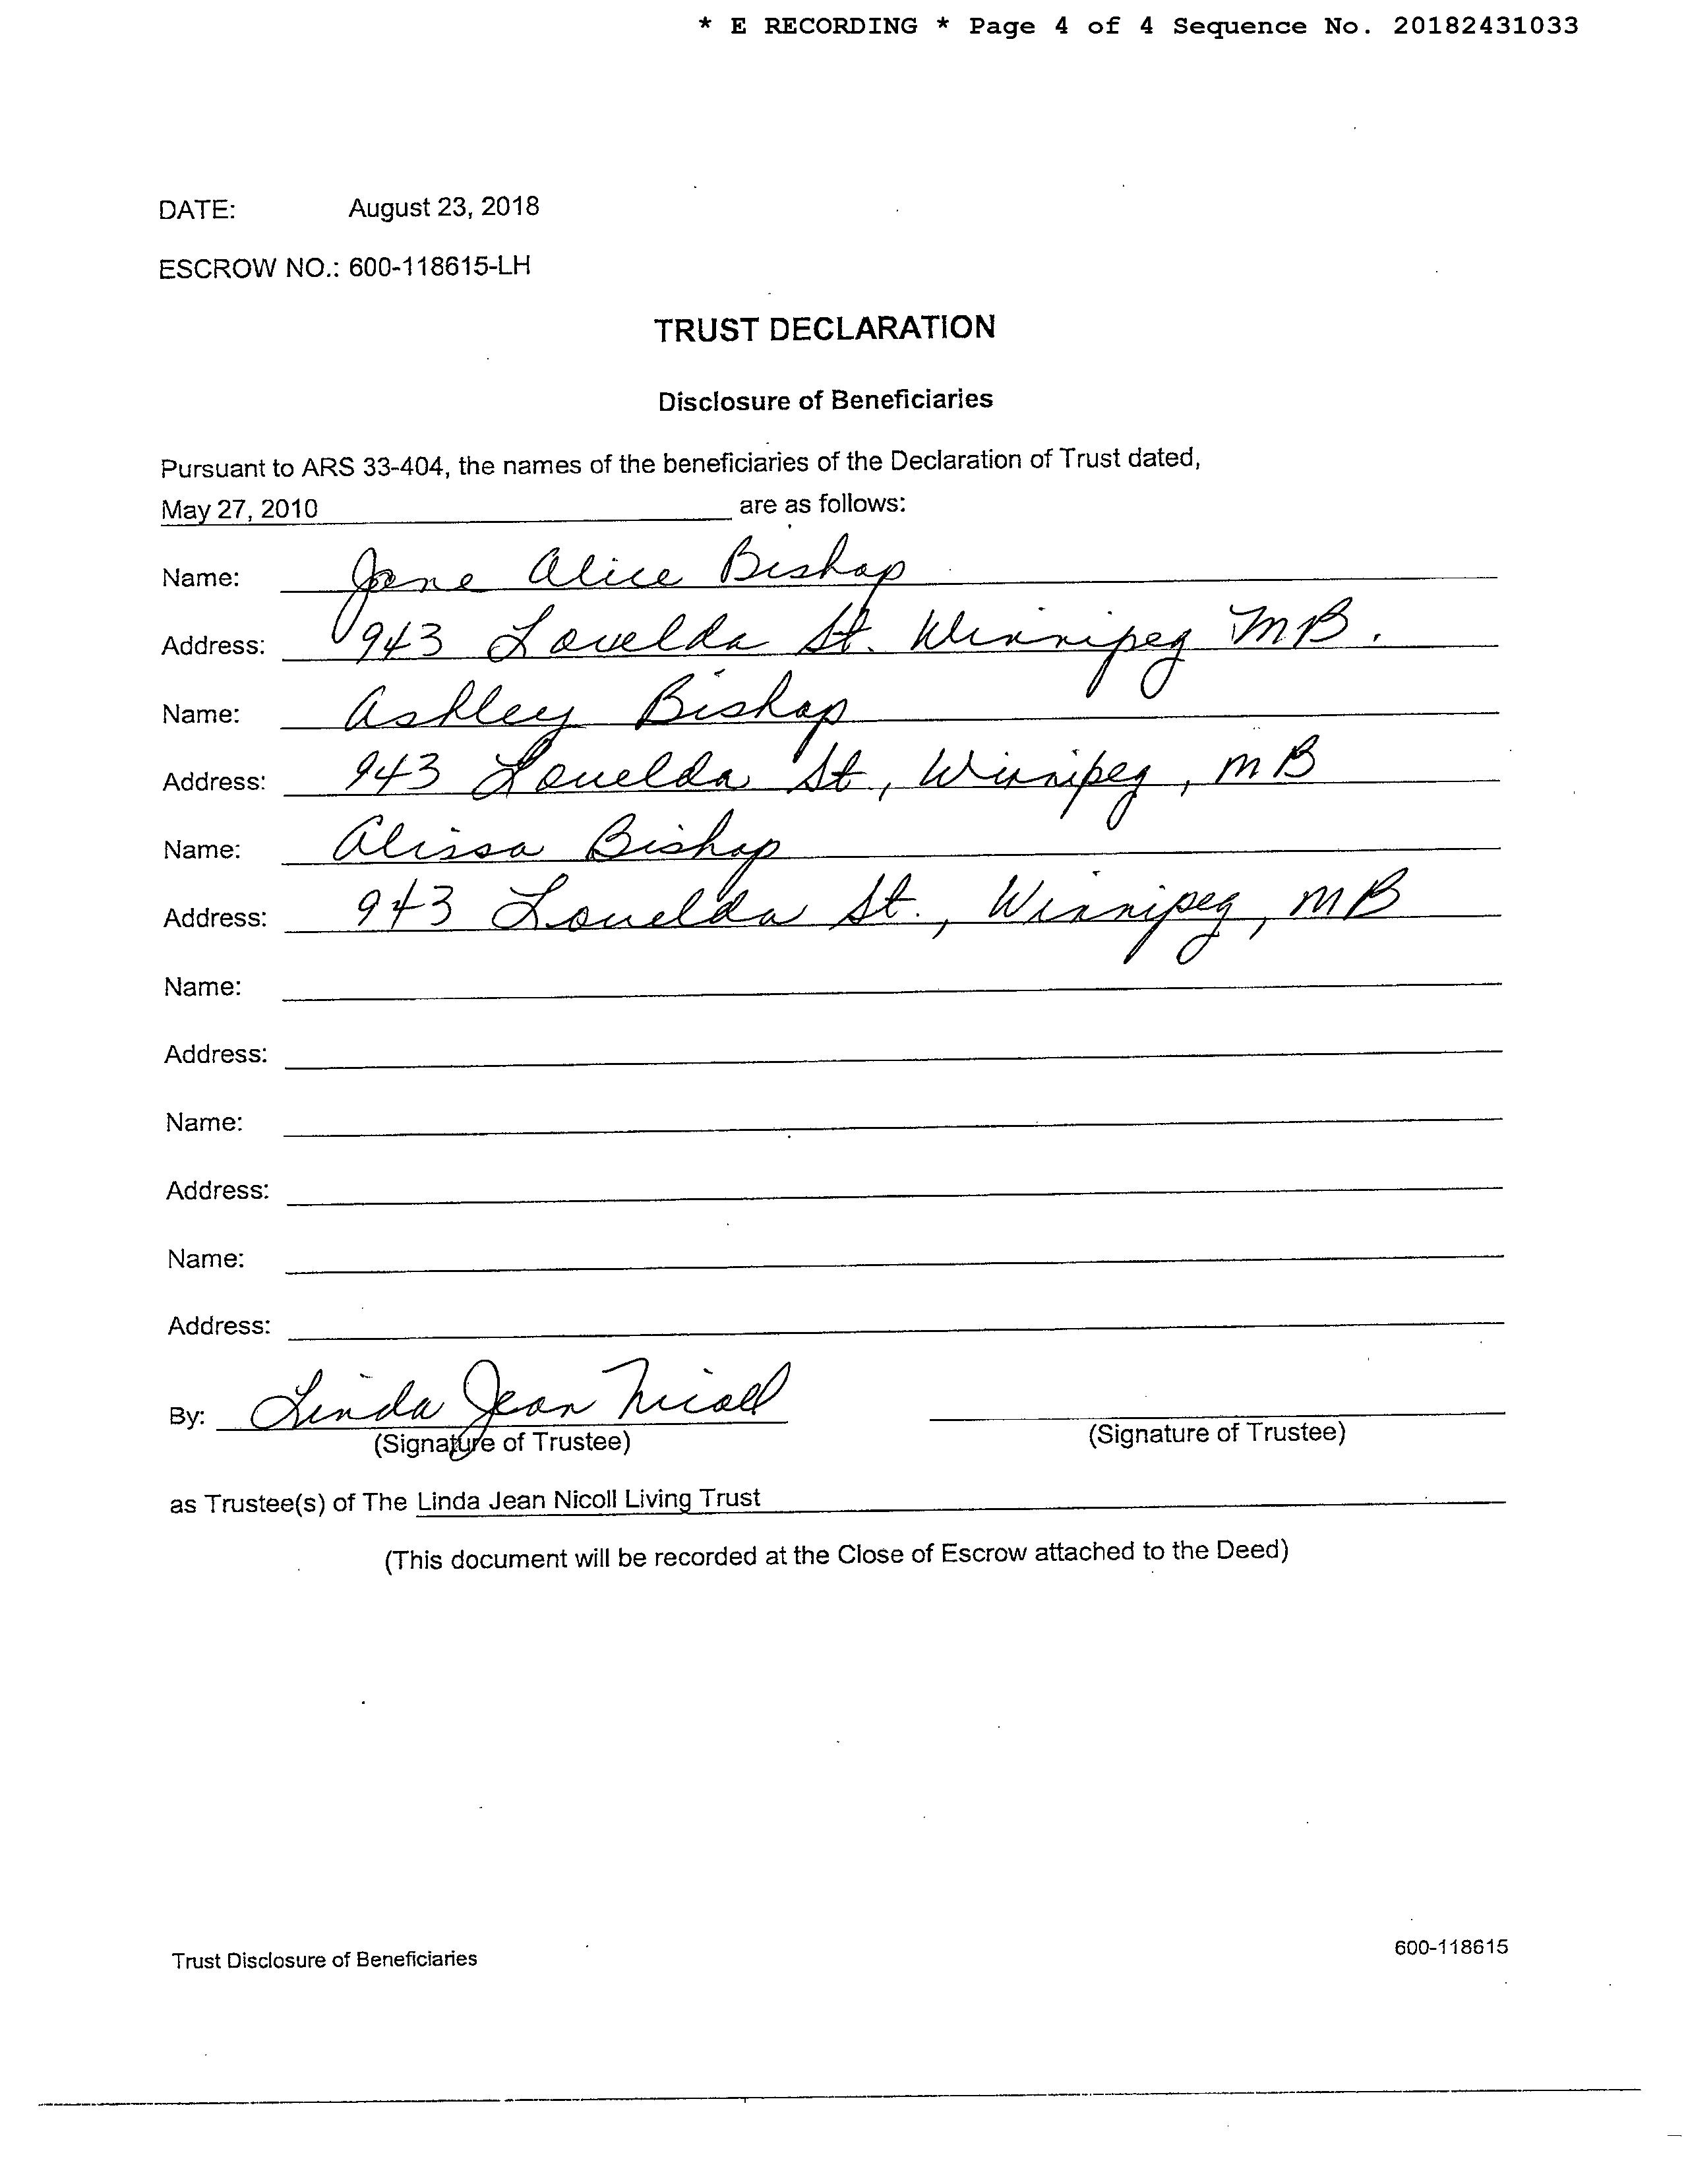 * E RECORDING * Page 4 of 4 Sequence No. 20182431033
DATE: August 23, 2018
ESCROW NO.: 600-118615-LH
TRUST DECLARATION
Disclosure of Beneficiaries
Pursuant to ARS 33-404, the names of the beneficiaries of the Declaration of Trust dated,
May 27, 2010 are as follows:
Name: Jane Alice Bishop
Address: 943 Louelda St. Winnipeg MB.
Name: Ashley Bishop
Address: 943 Louelda St, Winnipeg, MB
Name: Alissa Bishop
Address: 943 Louelda St., Winnipeg, MB
Name:
Address:
Name:
Address:
Name:
Address:
By: Linda Jean Nicoll
(Signature of Trustee) (Signature of Trustee)
as Trustee(s) of The Linda Jean Nicoll Living Trust
(This document will be recorded at the Close of Escrow attached to the Deed)
Trust Disclosure of Beneficiaries 600-118615